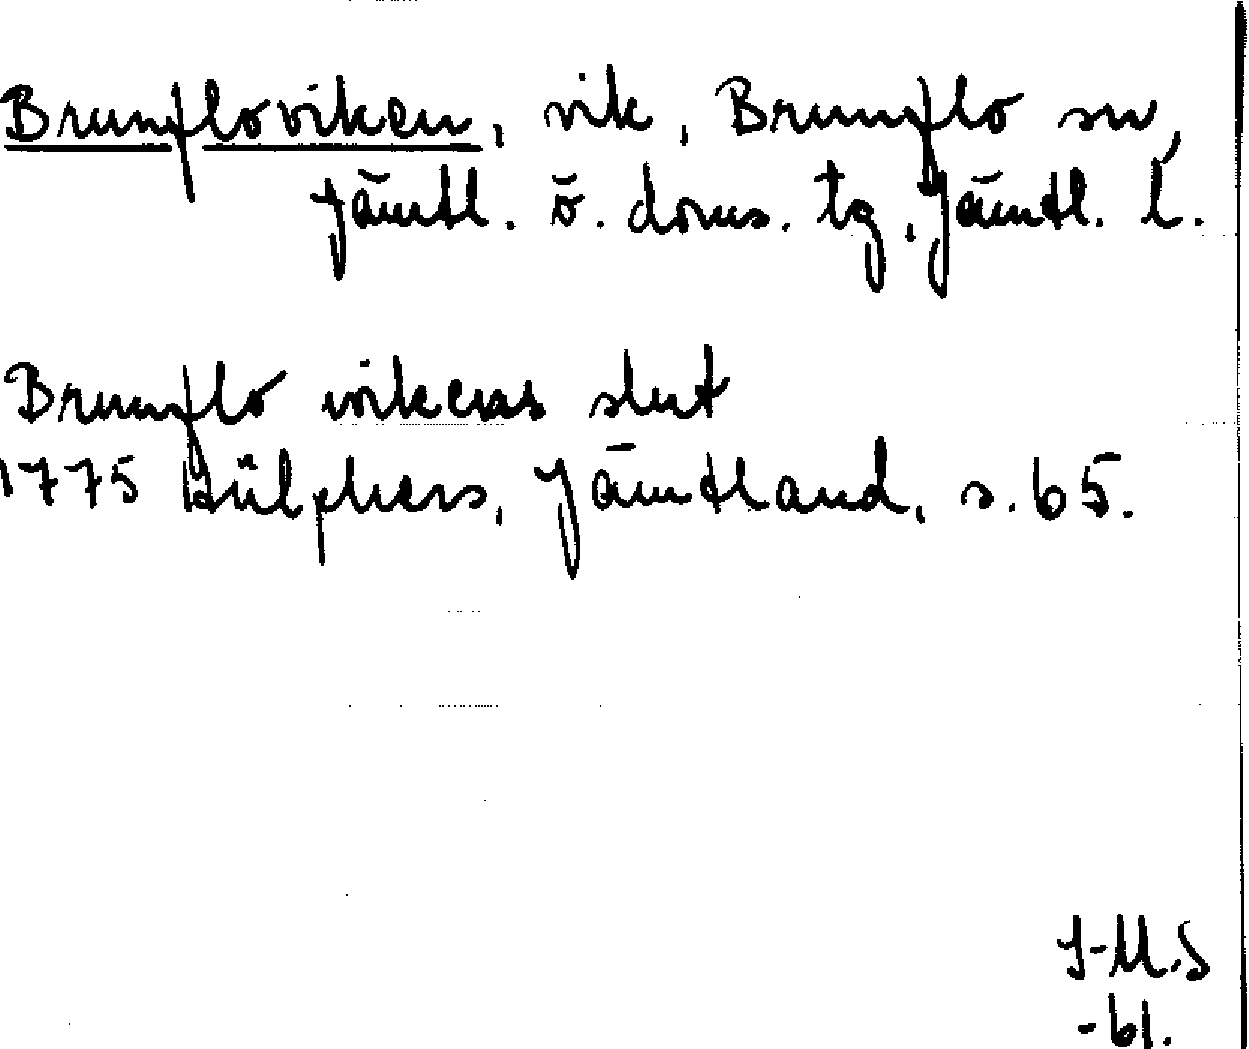 Brunfloviken, vik, Brunflo sn,
Jämtl. ö. doms. tg, Jämtl. l.
Brunflo vikens slut
1775 Hülphers, Jämtland, s. 65.
I-M.S
-61.